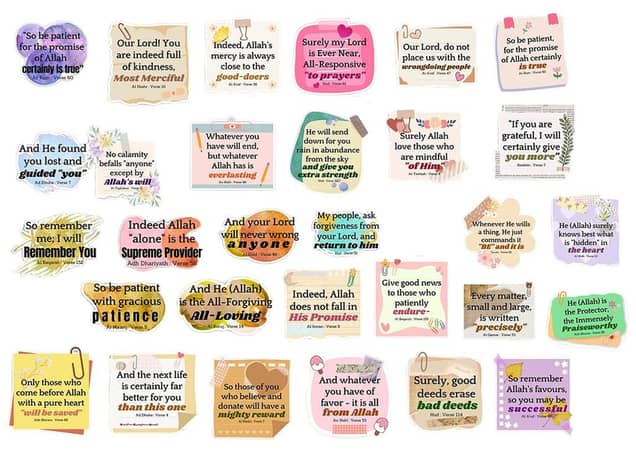 "So be patient
for the promise
of Allah
certainly is true"
Ar Rum : Verse 60
Our Lord! You
are indeed full
of kindness,
Most Merciful
Al Hashr : Verse 10
Indeed, Allah's
mercy is always
close to the
good-doers
Al A'raf : Verse 56
Surely my Lord
is Ever Near,
All-Responsive
"to prayers"
Hud : Verse 61
Our Lord, do not
place us with the
wrongdoing people
Al A'raf : Verse 47
So be patient,
for the promise
of Allah certainly
is true
Ar Rum : Verse 60
And He found
you lost and
guided "you"
Ad Dhuha : Verse 7
No calamity
befalls "anyone"
except by
Allah's will
Whatever you
have will end,
but whatever
Allah has is
everlasting
An Nahl : Verse 96
He will send
down for you
rain in abundance
from the sky
and give you
extra strength
Hud : Verse 52
Surely Allah
love those who
are mindful
"of Him"
"If you are
grateful, I will
certainly give
you more"
Ibrahim : Verse 7
So remember
me; I will
Remember You
Al Baqarah : Verse 152
Indeed Allah
"alone" is the
Supreme Provider
Adh Dhariyath : Verse 58
And your Lord
will never wrong
anyone
Al Kahf : Verse 49
My people, ask
forgiveness from
your Lord, and
return to him
Whenever He wills
a thing, He just
commands it
"BE" and it is
He (Allah) surely
knows best what
is "hidden" in
the heart
So be patient
with gracious
patience
Al Ma'arij : Verse 5
And He (Allah)
is the All-Forgiving
All-Loving
Al Buruj : Verse 14
Indeed, Allah
does not fall in
His Promise
Al Imran : Verse 9
Give good news
to those who
patiently
endure-
Al Baqarah : Verse 155
"Every matter,
small and large,
is written
precisely"
Al Qamar : Verse 53
He (Allah) is
the Protector,
the Immensely
Praiseworthy
Ash Shura : Verse 28
Only those who
come before Allah
with a pure heart
"will be saved"
Ash Shuara : Verse 89
And the next life
is certainly far
better for you
than this one
Ad Dhuha : Verse 4
So those of you
who believe and
donate will have a
mighty reward
Al Hadid : Verse 7
And whatever
you have of
favor - it is all
from Allah
An Nahl : Verse 53
Surely, good
deeds erase
bad deeds
Hud : Verse 114
So remember
Allah's favours,
so you may be
successful
Al A'raf : Verse 69